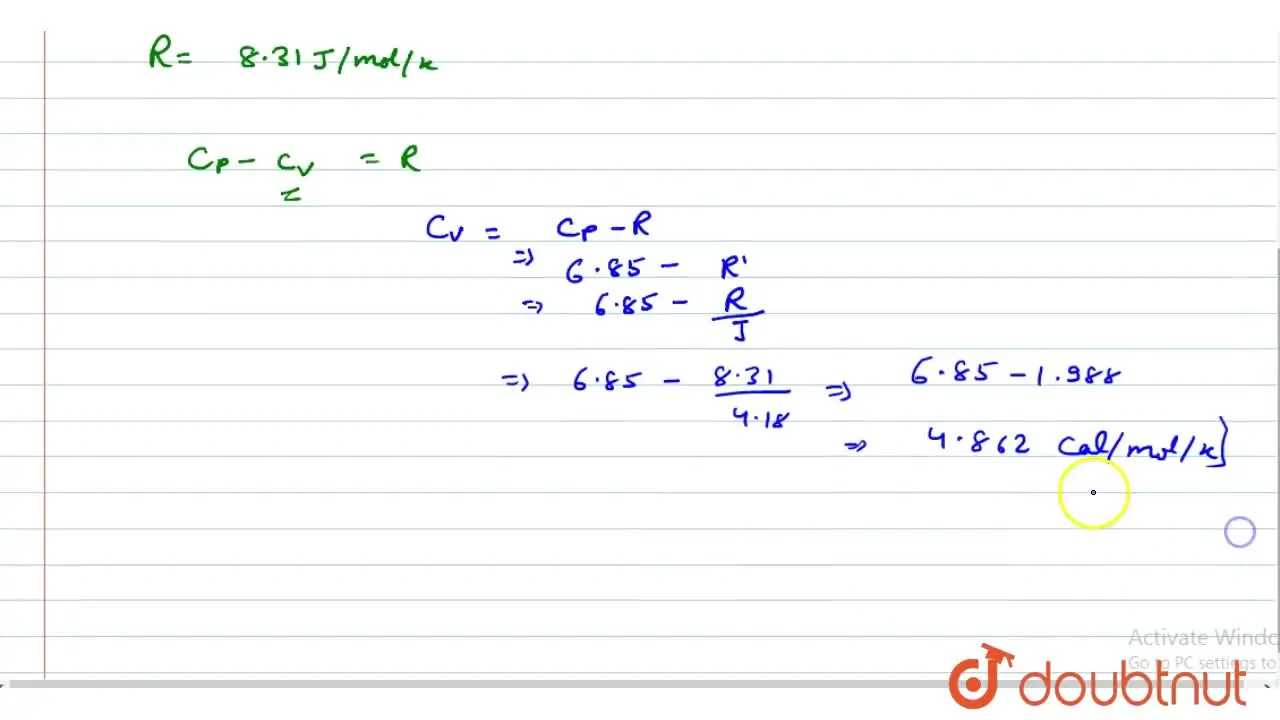 R= 8.31 J/mol/K
Cp - Cv = R
Cv = Cp - R
=> 6.85 - R'
=> 6.85 - R/J
=> 6.85 - 8.31/4.18 => 6.85 - 1.988
=> 4.862 Cal/mol/K]
Activate Windo
Go to PC settings to
doubtnut